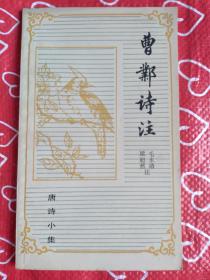 曹鄴诗注
梁超然 毛水清 注
唐诗小集